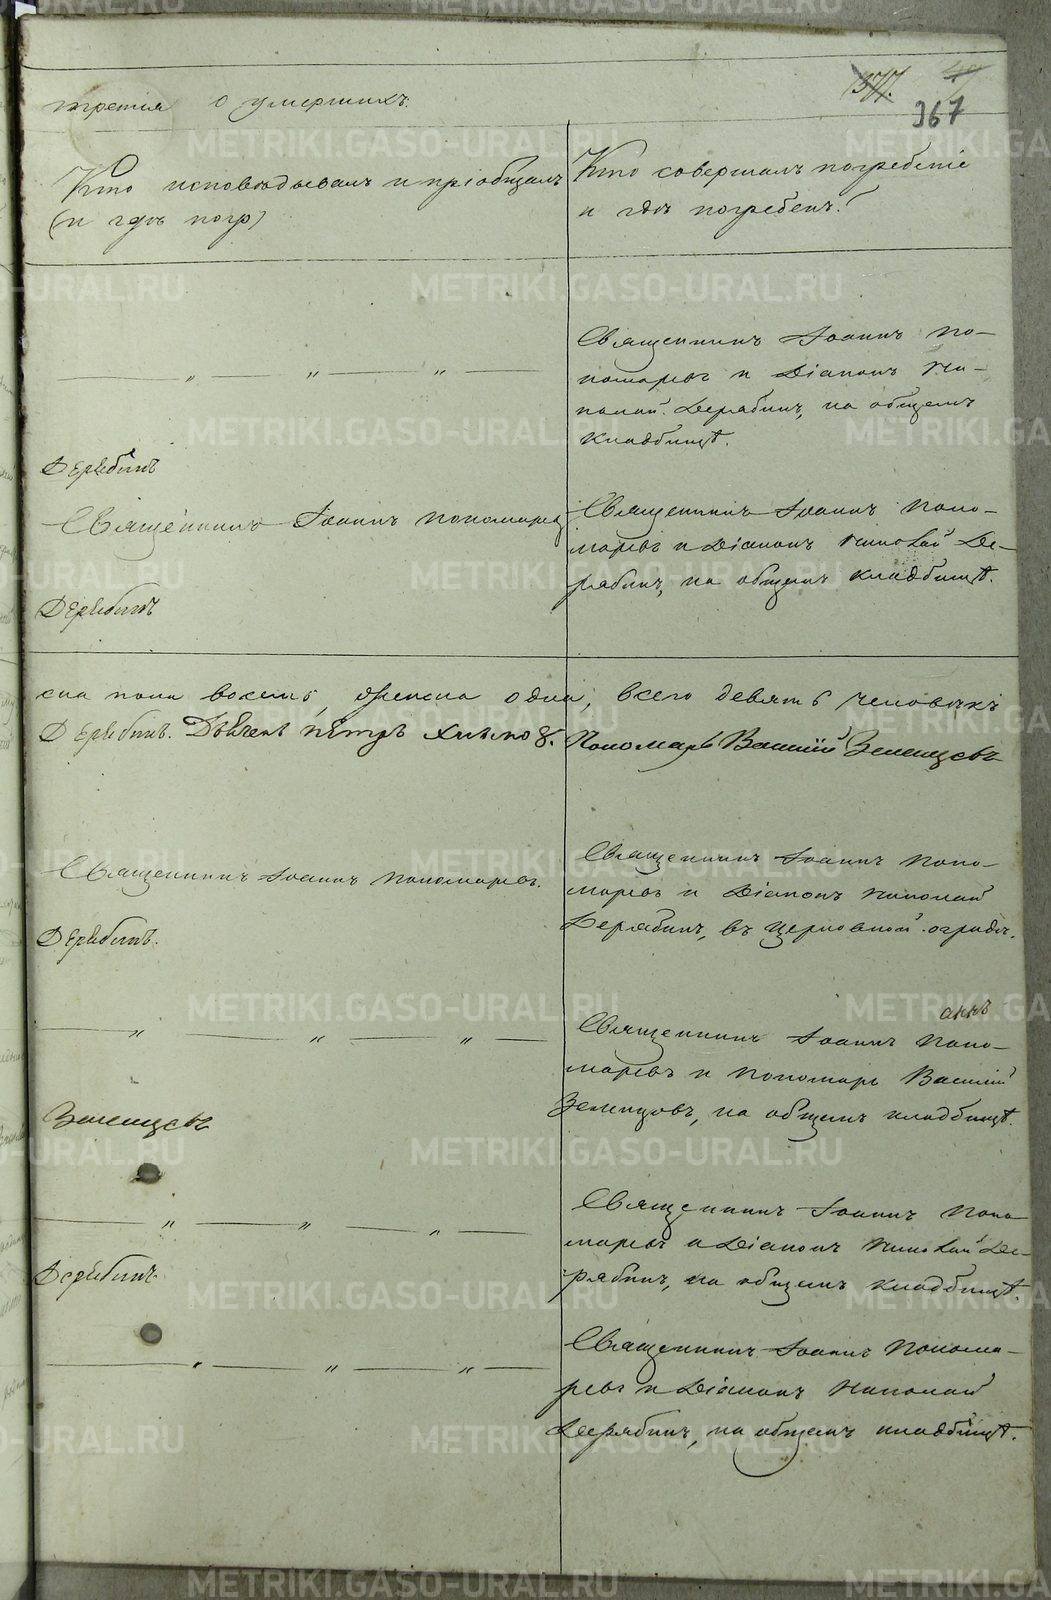 третія о умершихъ.
367
Кто исповѣдывалъ и пріобщалъ
(и гдѣ погр)
Кто совершалъ погребеніе
и гдѣ погребенъ.
Священникъ Іоаннъ По-
номаревъ и Діаконъ Ни-
колай Дерябинъ, на общемъ
кладбищѣ.
Дерябинъ
Священникъ Іоаннъ Пономаревъ
Священникъ Іоаннъ Поно-
маревъ и Діаконъ Николай Де-
рябинъ, на общемъ кладбищѣ.
Дерябинъ
ска пола восемь, женска одна, всего девять человѣкъ
Дерябинъ. Дьячекъ Петръ Пономарь Василій Зеленцовъ
Священникъ Іоаннъ Пономаревъ.
Священникъ Іоаннъ Поно-
маревъ и Діаконъ Николай
Дерябинъ, въ церковной оградѣ.
Дерябинъ.
Священникъ Іоаннъ Поно-
маревъ и пономарь Василій
Зеленцовъ, на общемъ кладбищѣ.
Зеленцовъ
Священникъ Іоаннъ Поно
маревъ и Діаконъ Николай Де-
рябинъ, на общемъ кладбищѣ.
Дерябинъ.
Священникъ Іоаннъ Понома-
ревъ и Діаконъ Николай
Дерябинъ, на общемъ кладбищѣ.
METRIKI.GASO-URAL.RU